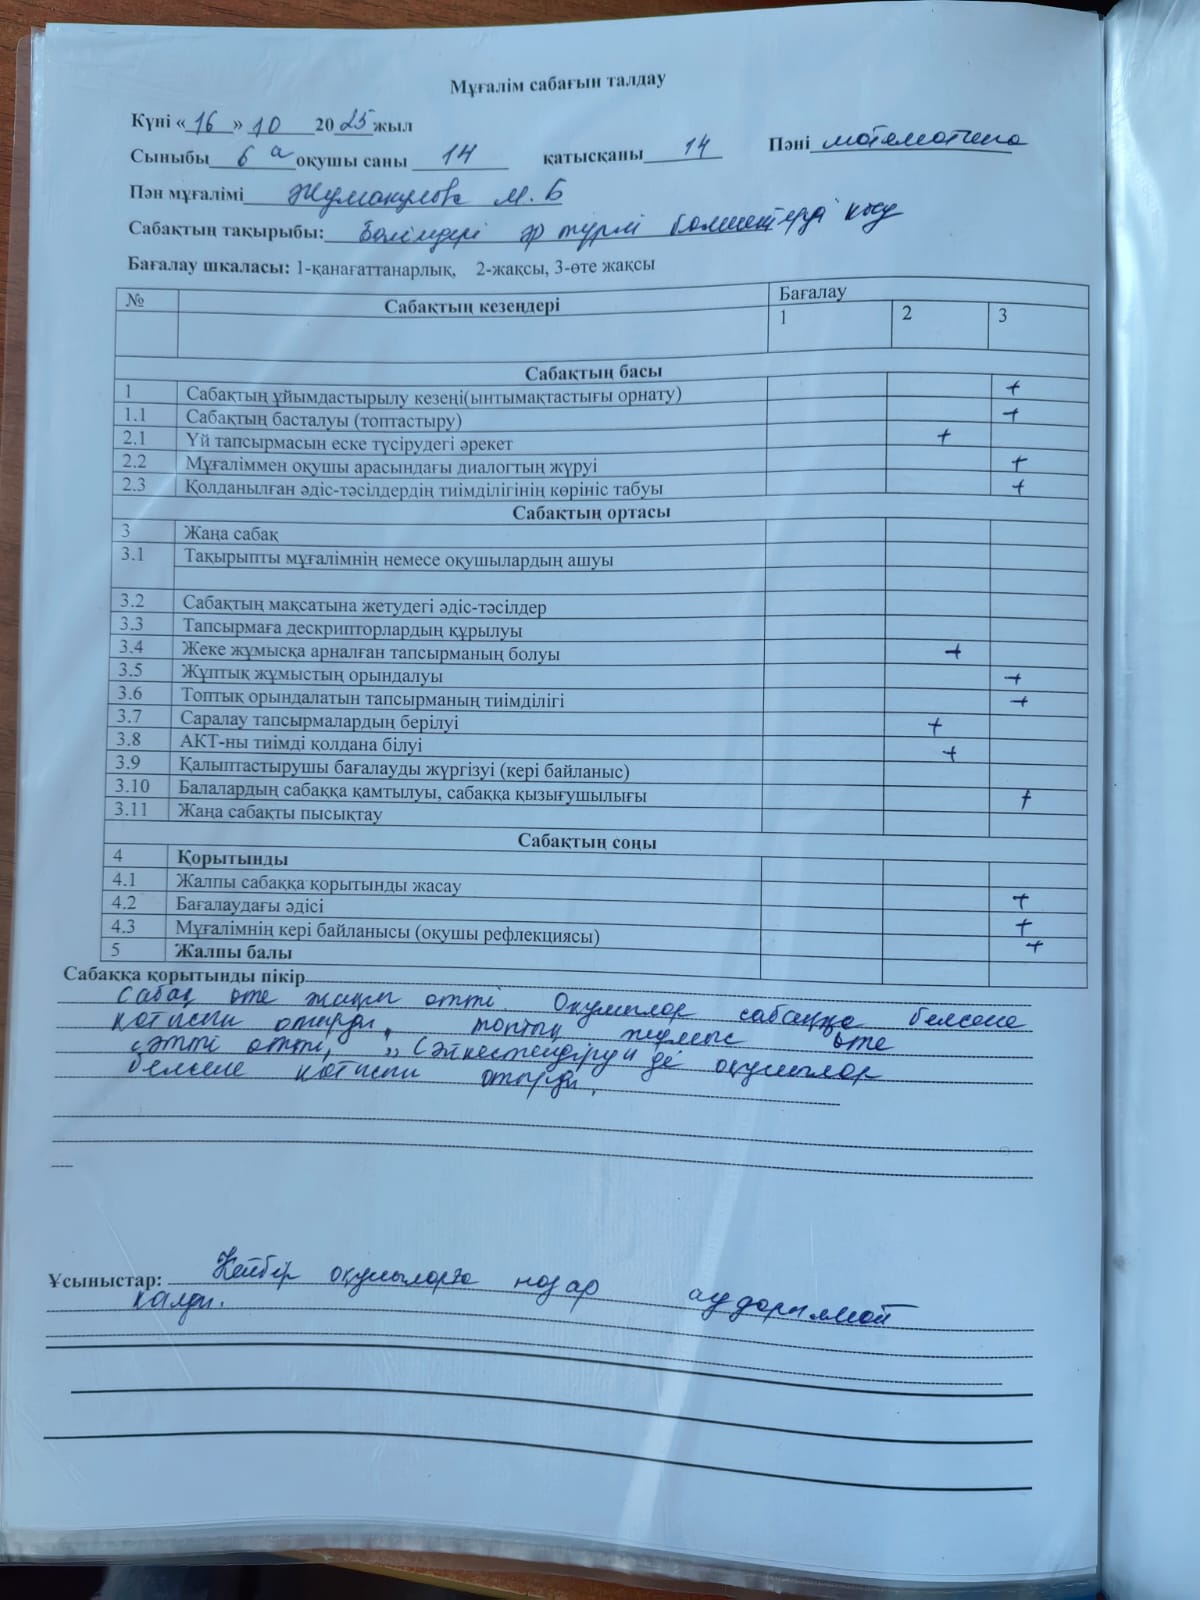 Мұғалім сабағын талдау
Күні «16» 10 2025 жыл
Сыныбы 6 а оқушы саны 14 қатысқаны 14 Пәні математика
Пән мұғалімі Жумакулова М. Б
Сабақтың тақырыбы: Бөлімдері әр түрлі бөлшектерді қосу
Бағалау шкаласы: 1-қанағаттанарлық, 2-жақсы, 3-өте жақсы
№ Сабақтың кезеңдері Бағалау
1 2 3
Сабақтың басы
1 Сабақтың ұйымдастырылу кезеңі(ынтымақтастығы орнату) +
1.1 Сабақтың басталуы (топтастыру) +
2.1 Үй тапсырмасын еске түсірудегі әрекет +
2.2 Мұғаліммен оқушы арасындағы диалогтың жүруі +
2.3 Қолданылған әдіс-тәсілдердің тиімділігінің көрініс табуы +
Сабақтың ортасы
3 Жаңа сабақ
3.1 Тақырыпты мұғалімнің немесе оқушылардың ашуы
3.2 Сабақтың мақсатына жетудегі әдіс-тәсілдер
3.3 Тапсырмаға дескрипторлардың құрылуы
3.4 Жеке жұмысқа арналған тапсырманың болуы +
3.5 Жұптық жұмыстың орындалуы +
3.6 Топтық орындалатын тапсырманың тиімділігі +
3.7 Саралау тапсырмалардың берілуі +
3.8 АКТ-ны тиімді қолдана білуі +
3.9 Қалыптастырушы бағалауды жүргізуі (кері байланыс)
3.10 Балалардың сабаққа қамтылуы, сабаққа қызығушылығы +
3.11 Жаңа сабақты пысықтау
Сабақтың соңы
4 Қорытынды
4.1 Жалпы сабаққа қорытынды жасау +
4.2 Бағалаудағы әдісі +
4.3 Мұғалімнің кері байланысы (оқушы рефлекциясы) +
5 Жалпы балы
Сабаққа қорытынды пікір
Сабақ өте жақсы өтті. Оқушылар сабаққа белсене
қатысып отырды, топтық жұмыс өте
сәтті өтті, „Сәйкестендіру" де оқушылар
белсене қатысып отырды.
Ұсыныстар: Кейбір оқушыларға назар аударылмай
қалды.